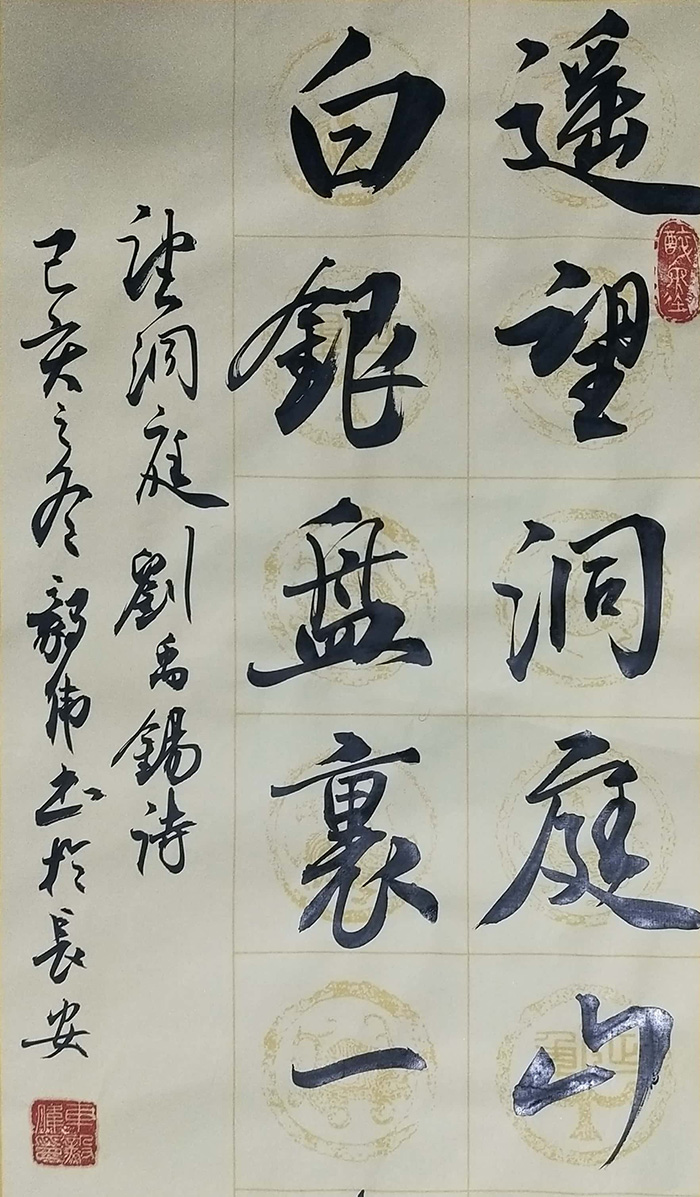 遥望洞庭山
白銀盘裏一
望洞庭劉禹錫诗
己亥之冬毅偉书於長安